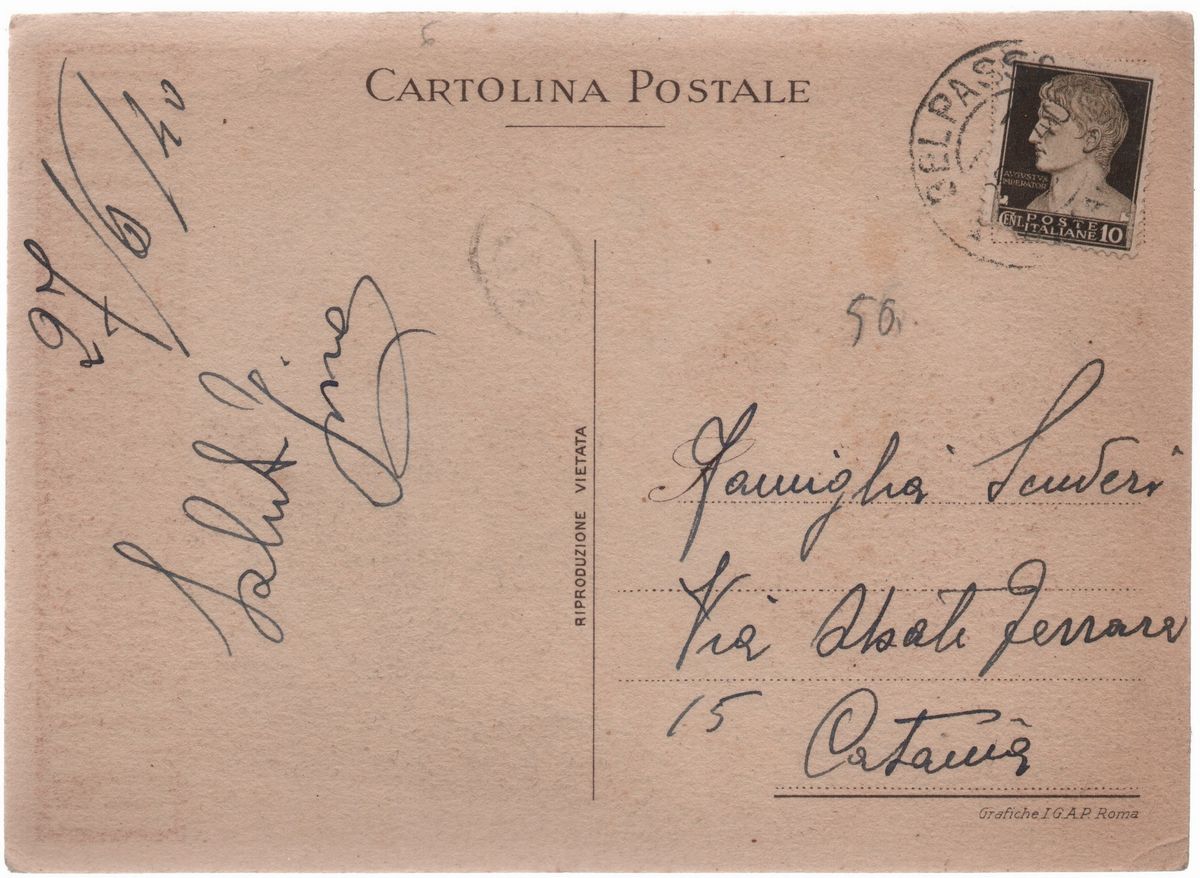 CARTOLINA POSTALE
BELPASSO
AVGVSTVS
IMPERATOR
POSTE
CENT. ITALIANE 10
27/6/40
Saluti
Pina
56
RIPRODUZIONE VIETATA
Famiglia Scuderi
Via Abate Ferrara
15
Catania
Grafiche I.G.A.P. Roma